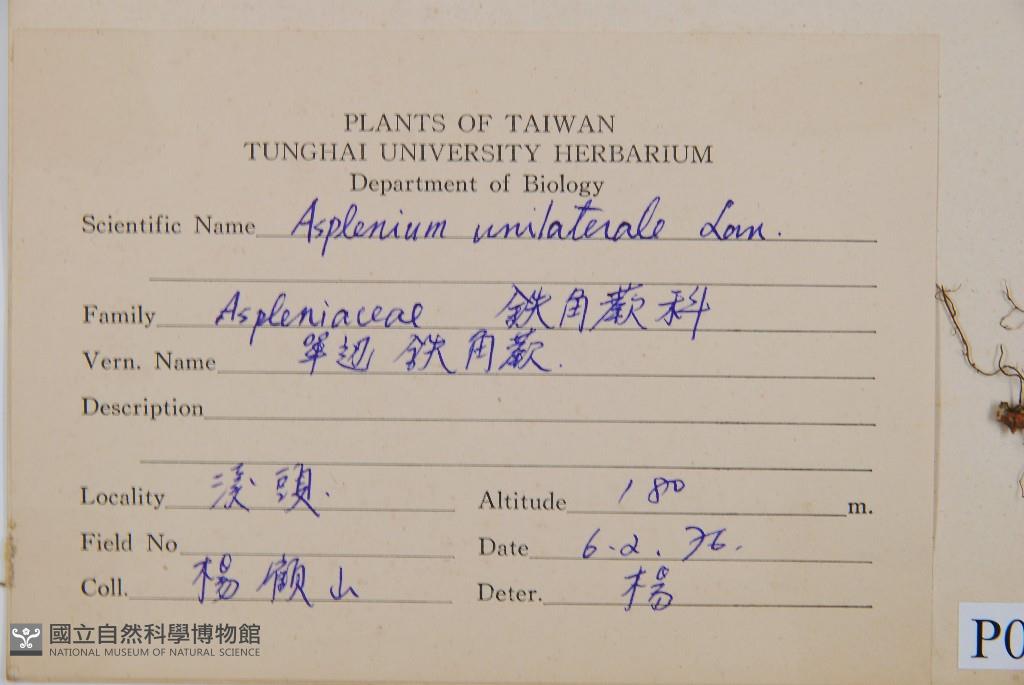 PLANTS OF TAIWAN
TUNGHAI UNIVERSITY HERBARIUM
Department of Biology
Scientific Name Asplenium unilaterale Lam.
Family Aspleniaceae 鉄角蕨科
Vern. Name 單边鉄角蕨.
Description
Locality 溪頭. Altitude 180 m.
Field No Date 6.2.76.
Coll. 楊顧山 Deter. 楊
P0
國立自然科學博物館
NATIONAL MUSEUM OF NATURAL SCIENCE